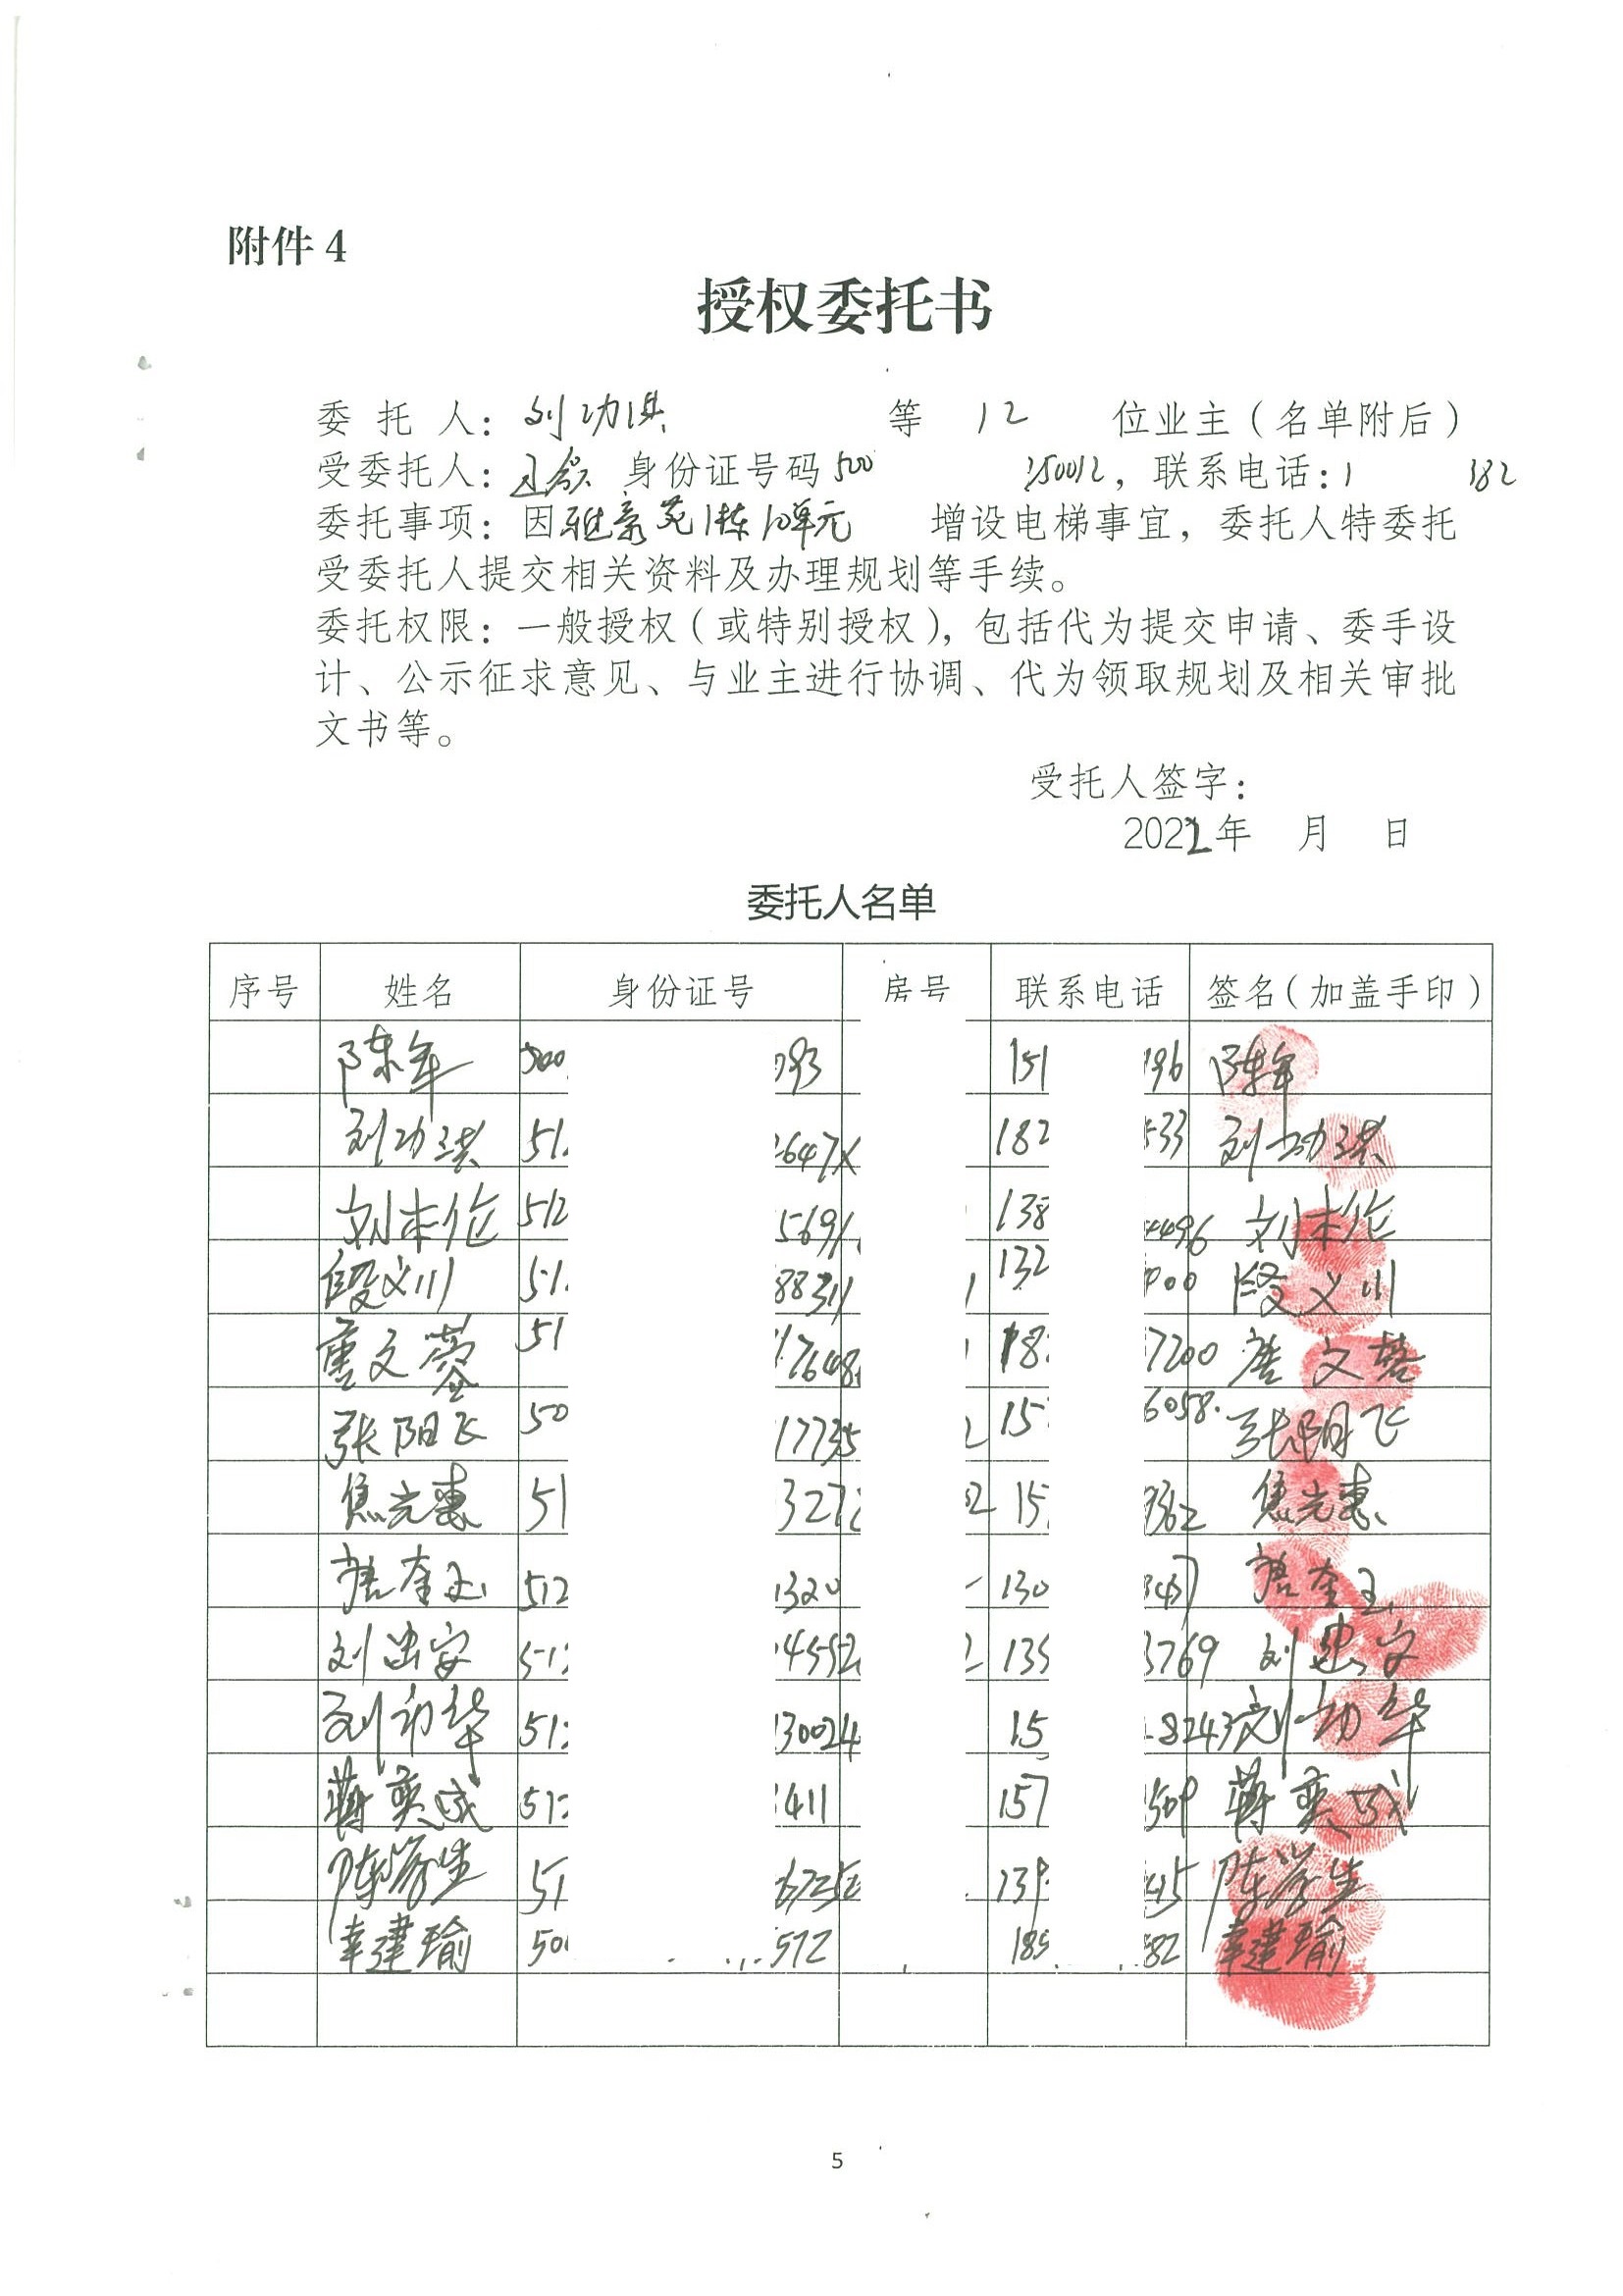 附件4
授权委托书
委 托 人：刘功洪 等 12 位业主（名单附后）
受委托人： 身份证号码500 250012，联系电话：1 182
委托事项：因雅豪苑1栋10单元 增设电梯事宜，委托人特委托
受委托人提交相关资料及办理规划等手续。
委托权限：一般授权（或特别授权），包括代为提交申请、委手设
计、公示征求意见、与业主进行协调、代为领取规划及相关审批
文书等。
受托人签字：
2022年 月 日
委托人名单
序号 姓名 身份证号 房号 联系电话 签名（加盖手印）
陈年 500 793 151 196 陈年
刘功洪 51 647X 182 533 刘功洪
刘本伦 512 5691 138 4496 刘本伦
段义川 51 88311 1 132 900 段义川
文蓉 51 17648 18 7200 文蓉
张阳飞 50 17735 2 15 6058 张阳飞
焦光惠 51 3272 02 15 9362 焦光惠
唐奎玉 512 1320 130 3437 唐奎玉
刘忠安 512 4552 2 135 3769 刘忠安
刘功华 512 30024 15 8243 刘功华
蒋奕成 512 411 157 509 蒋奕成
陈学生 51 6725 139 415 陈学生
幸建瑜 500 572 189 82 幸建瑜
5